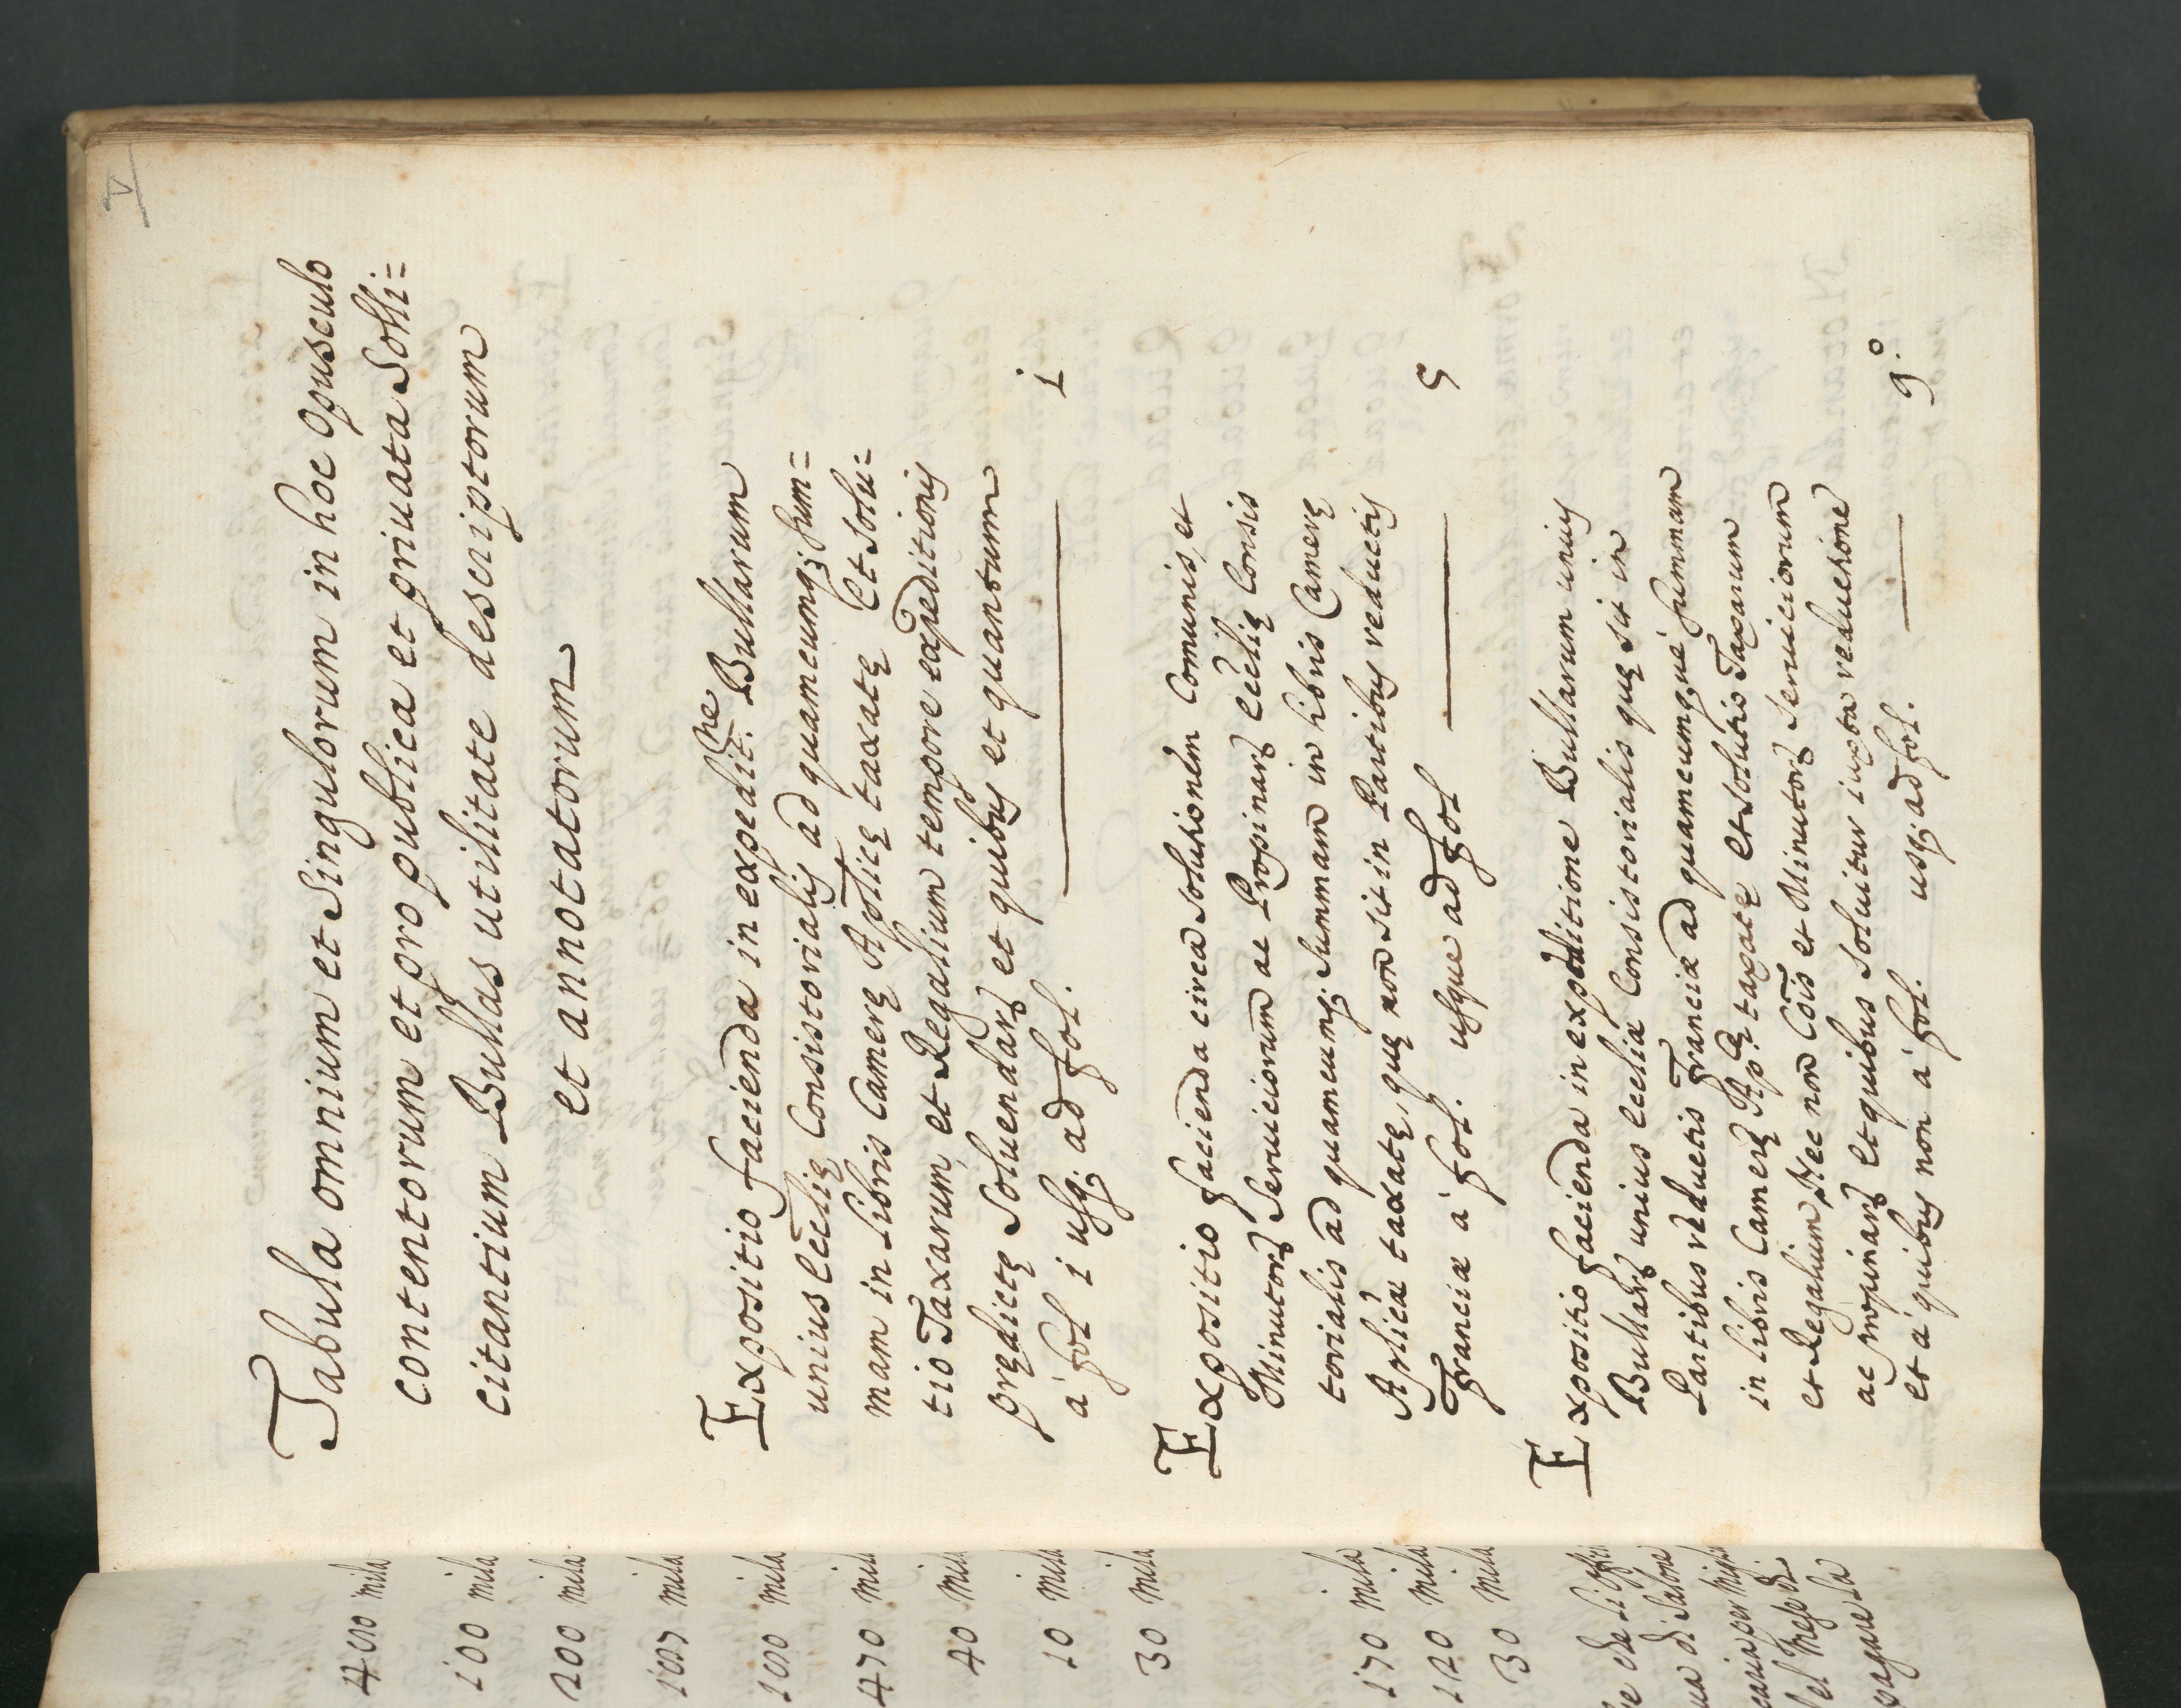 V
Tabula omnium et Singulorum in hoc Opusculo
contentorum et pro publica et priuata Solli=
citantium Bullas utilitate descriptorum
et annotatorum
Expositio facienda in expedit.ne Bullarum
unius Ecclię Consistorialis ad quamcumq; sum=
mam in Libris Camerę Aplicę taxatę Et Solu=
tio Taxarum, et Regalium tempore expeditionis
prędictę Soluendarum et quibus et quantum
à fol 1 usq; ad fol. 1
Expositio facienda circa Solutionem Comunis, et
Minutorum Seruiciorum ac Propinarum Ecclię Consis
torialis ad quamcumq; Summam in libris Camerę
Aplicæ taxatę, quę non sit in Partibus reductis
Franciæ à fol. usque ad fol 5
Expositio facienda in expeditione Bullarum unius
Bullarum unius Eccliæ Consistorialis quę sit in
Partibus reductis Franciæ ad quamcumque summam
in libris Camerę Ap.cę taxatę et Solutio Taxarum
et Regalium, Nec non Cōis et Minutorum Seruiciorum
ac propinarum et quibus Soluitur iuxta reductione
et à quibus non à fol. usq; ad fol. 9.º
400 mila
100 mila
200 mila
mila
mila
470 mila
40 mila
10 mila
30 mila
170 mila
120 mila
30 mila
pagare la